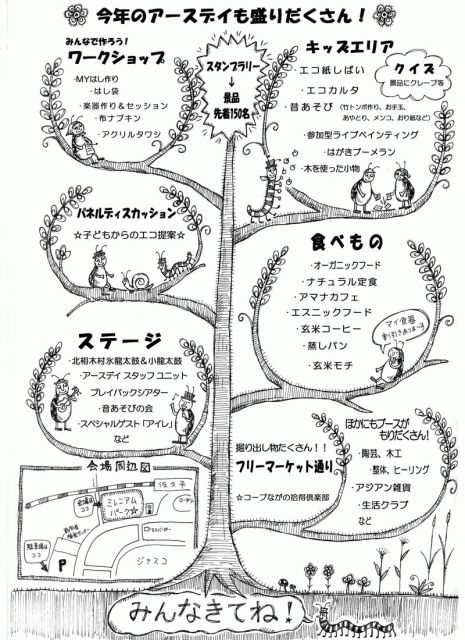 今年のアースデイも盛りだくさん！
みんなで作ろう！
ワークショップ
・MYはし作り
・はし袋
・楽器作り＆セッション
・布ナプキン
・アクリルタワシ
スタンプラリー
↓
景品
先着150名
キッズエリア
・エコ紙しばい
・エコカルタ
・昔あそび（竹トンボ作り、お手玉、
あやとり、メンコ、おり紙など）
・参加型ライブペインティング
・はがきブーメラン
・木を使った小物
クイズ
景品にクレープ等
パネルディスカッション
☆子どもからのエコ提案☆
食べもの
・オーガニックフード
・ナチュラル定食
・アマナカフェ
・エスニックフード
・玄米コーヒー
・蒸しパン
・玄米モチ
マイ食器
割引きありま〜す
ステージ
・北相木村氷龍太鼓＆小龍太鼓
・アースデイ スタッフ ユニット
プレイバックシアター
・音あそびの会
・スペシャルゲスト「アイレ」
など
掘り出し物たくさん！！
フリーマーケット通り
☆コープながの拾得倶楽部
ほかにもブースが
もりだくさん！
・陶芸、木工
・整体、ヒーリング
・アジアン雑貨
・生活クラブ
など
会場周辺図
佐久平
会場は
ココ
ミレニアム
パーク☆
駐車場は
ココ
P
ジャスコ
みんなきてね！